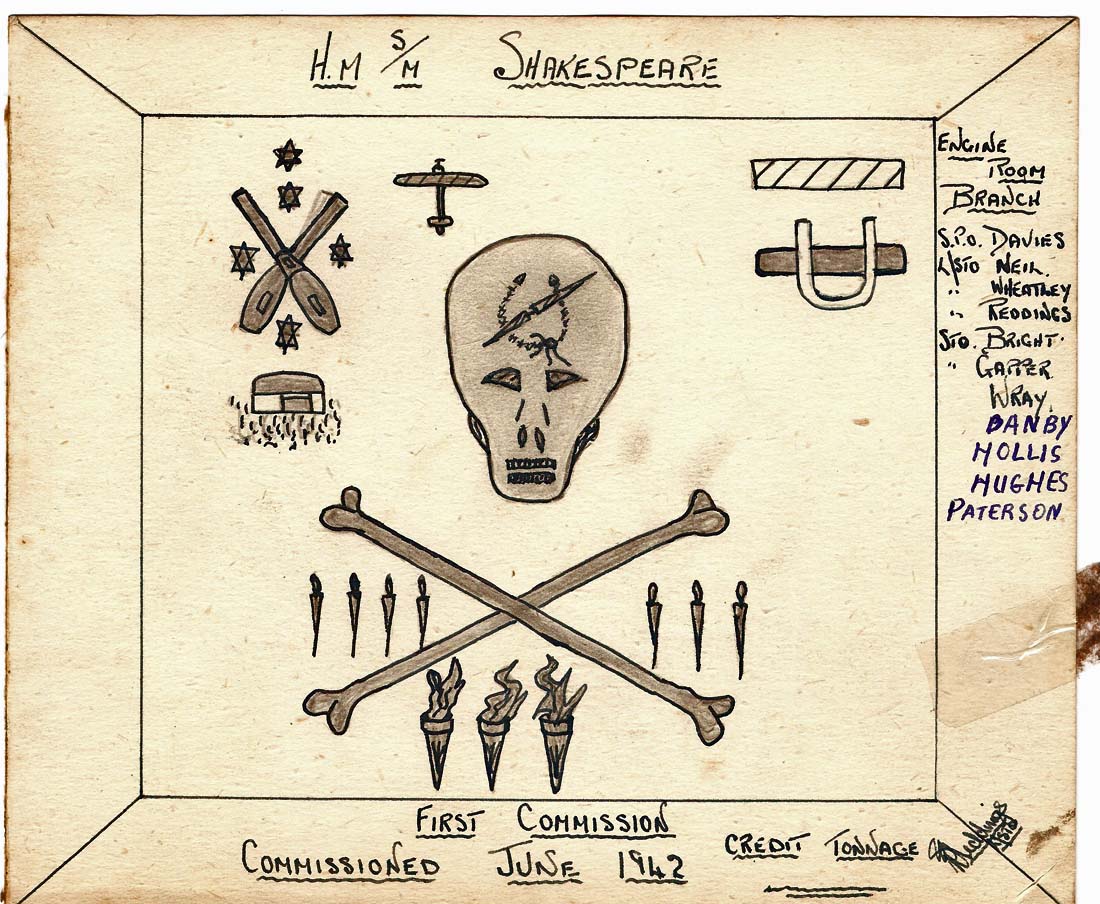 H.M S/M SHAKESPEARE
ENGINE
ROOM
BRANCH
S.P.O. DAVIES
L/STO NEIL.
" WHEATLEY
" REDDINGS
STO. BRIGHT.
" GAPPER
WRAY.
DANBY
HOLLIS
HUGHES
PATERSON
FIRST COMMISSION
COMMISSIONED JUNE 1942
CREDIT TONNAGE